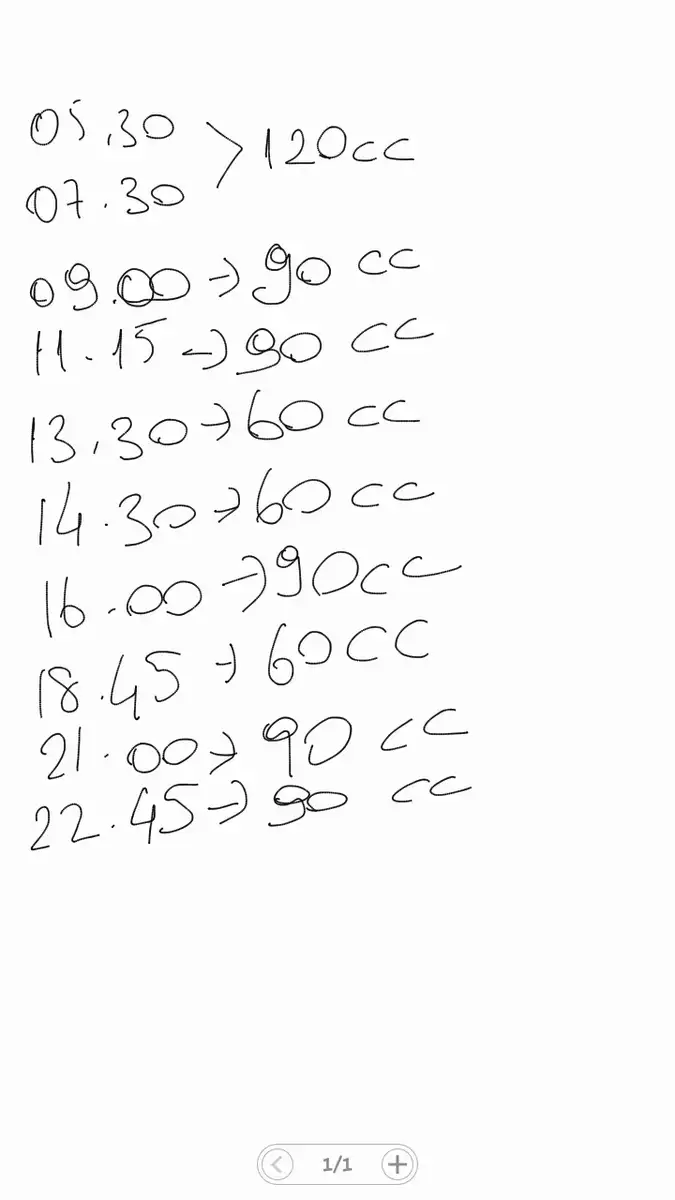 05.30
07.30 > 120cc
09.00 → 90 cc
11.15 → 90 cc
13.30 → 60 cc
14.30 → 60 cc
16.00 → 90cc
18.45 → 60cc
21.00 → 90 cc
22.45 → 90 cc
1/1